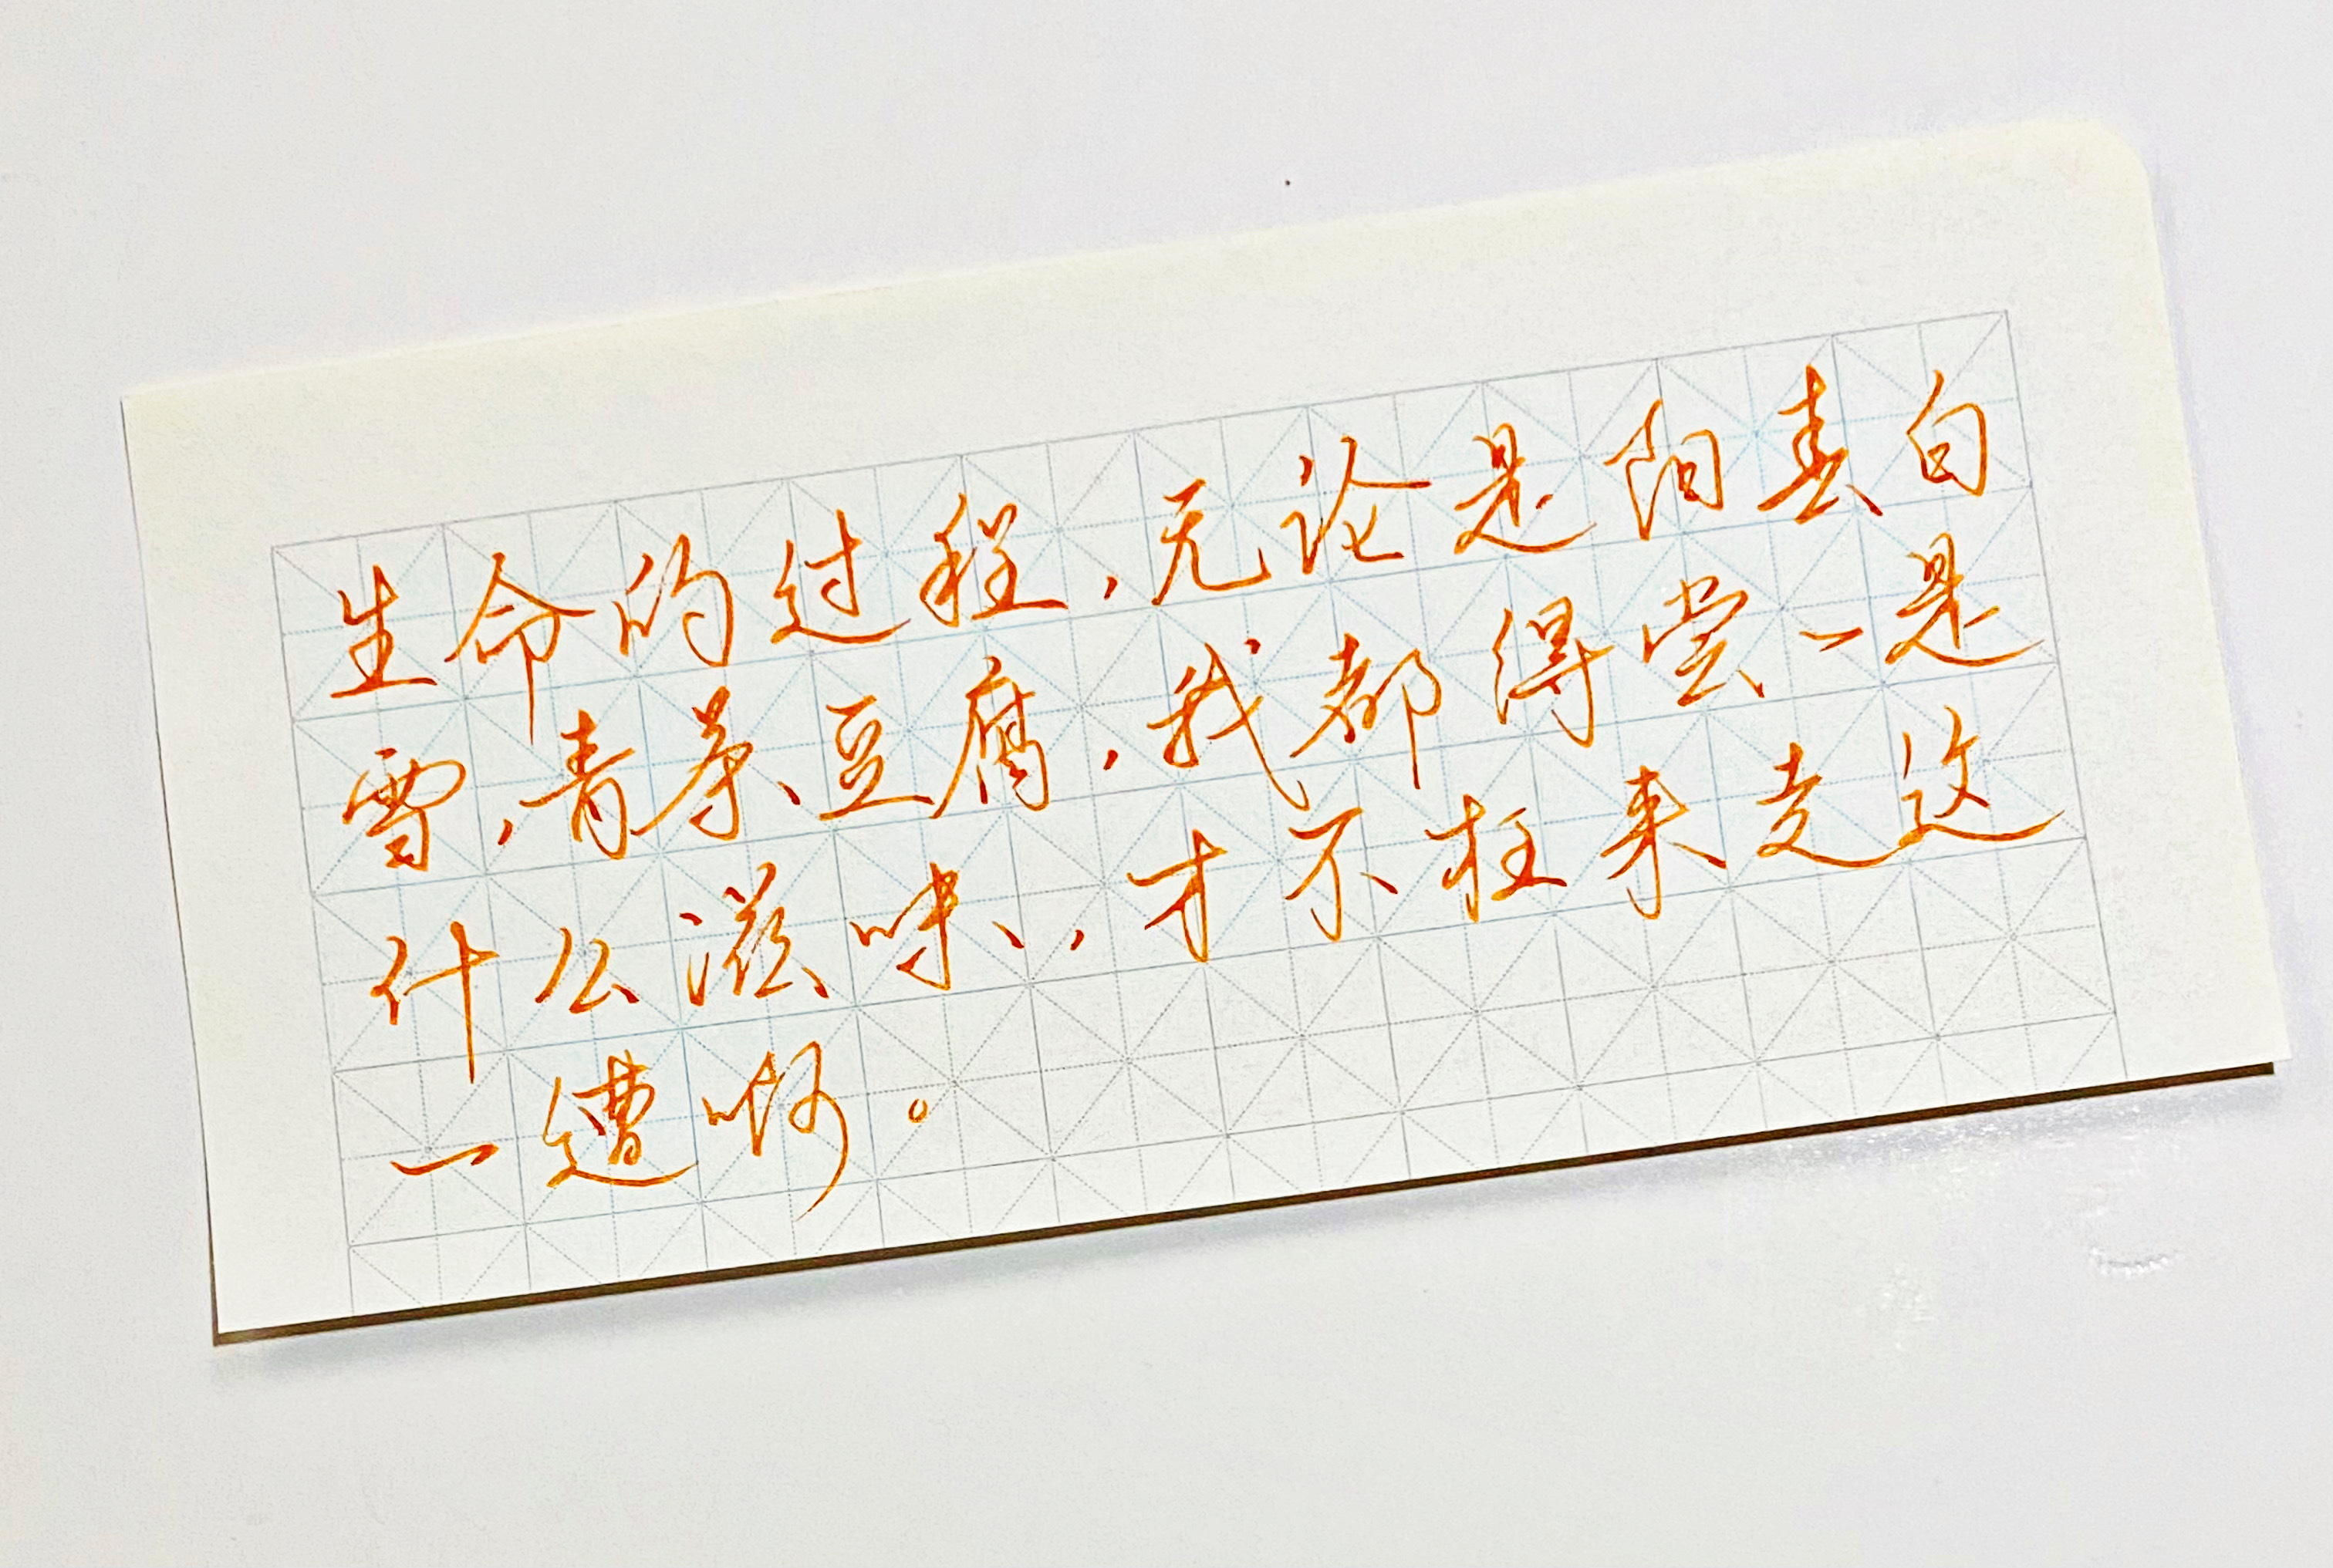 生命的过程，无论是阳春白
雪，青菜豆腐，我都得尝一是
什么滋味，才不枉来走这
一遭啊。